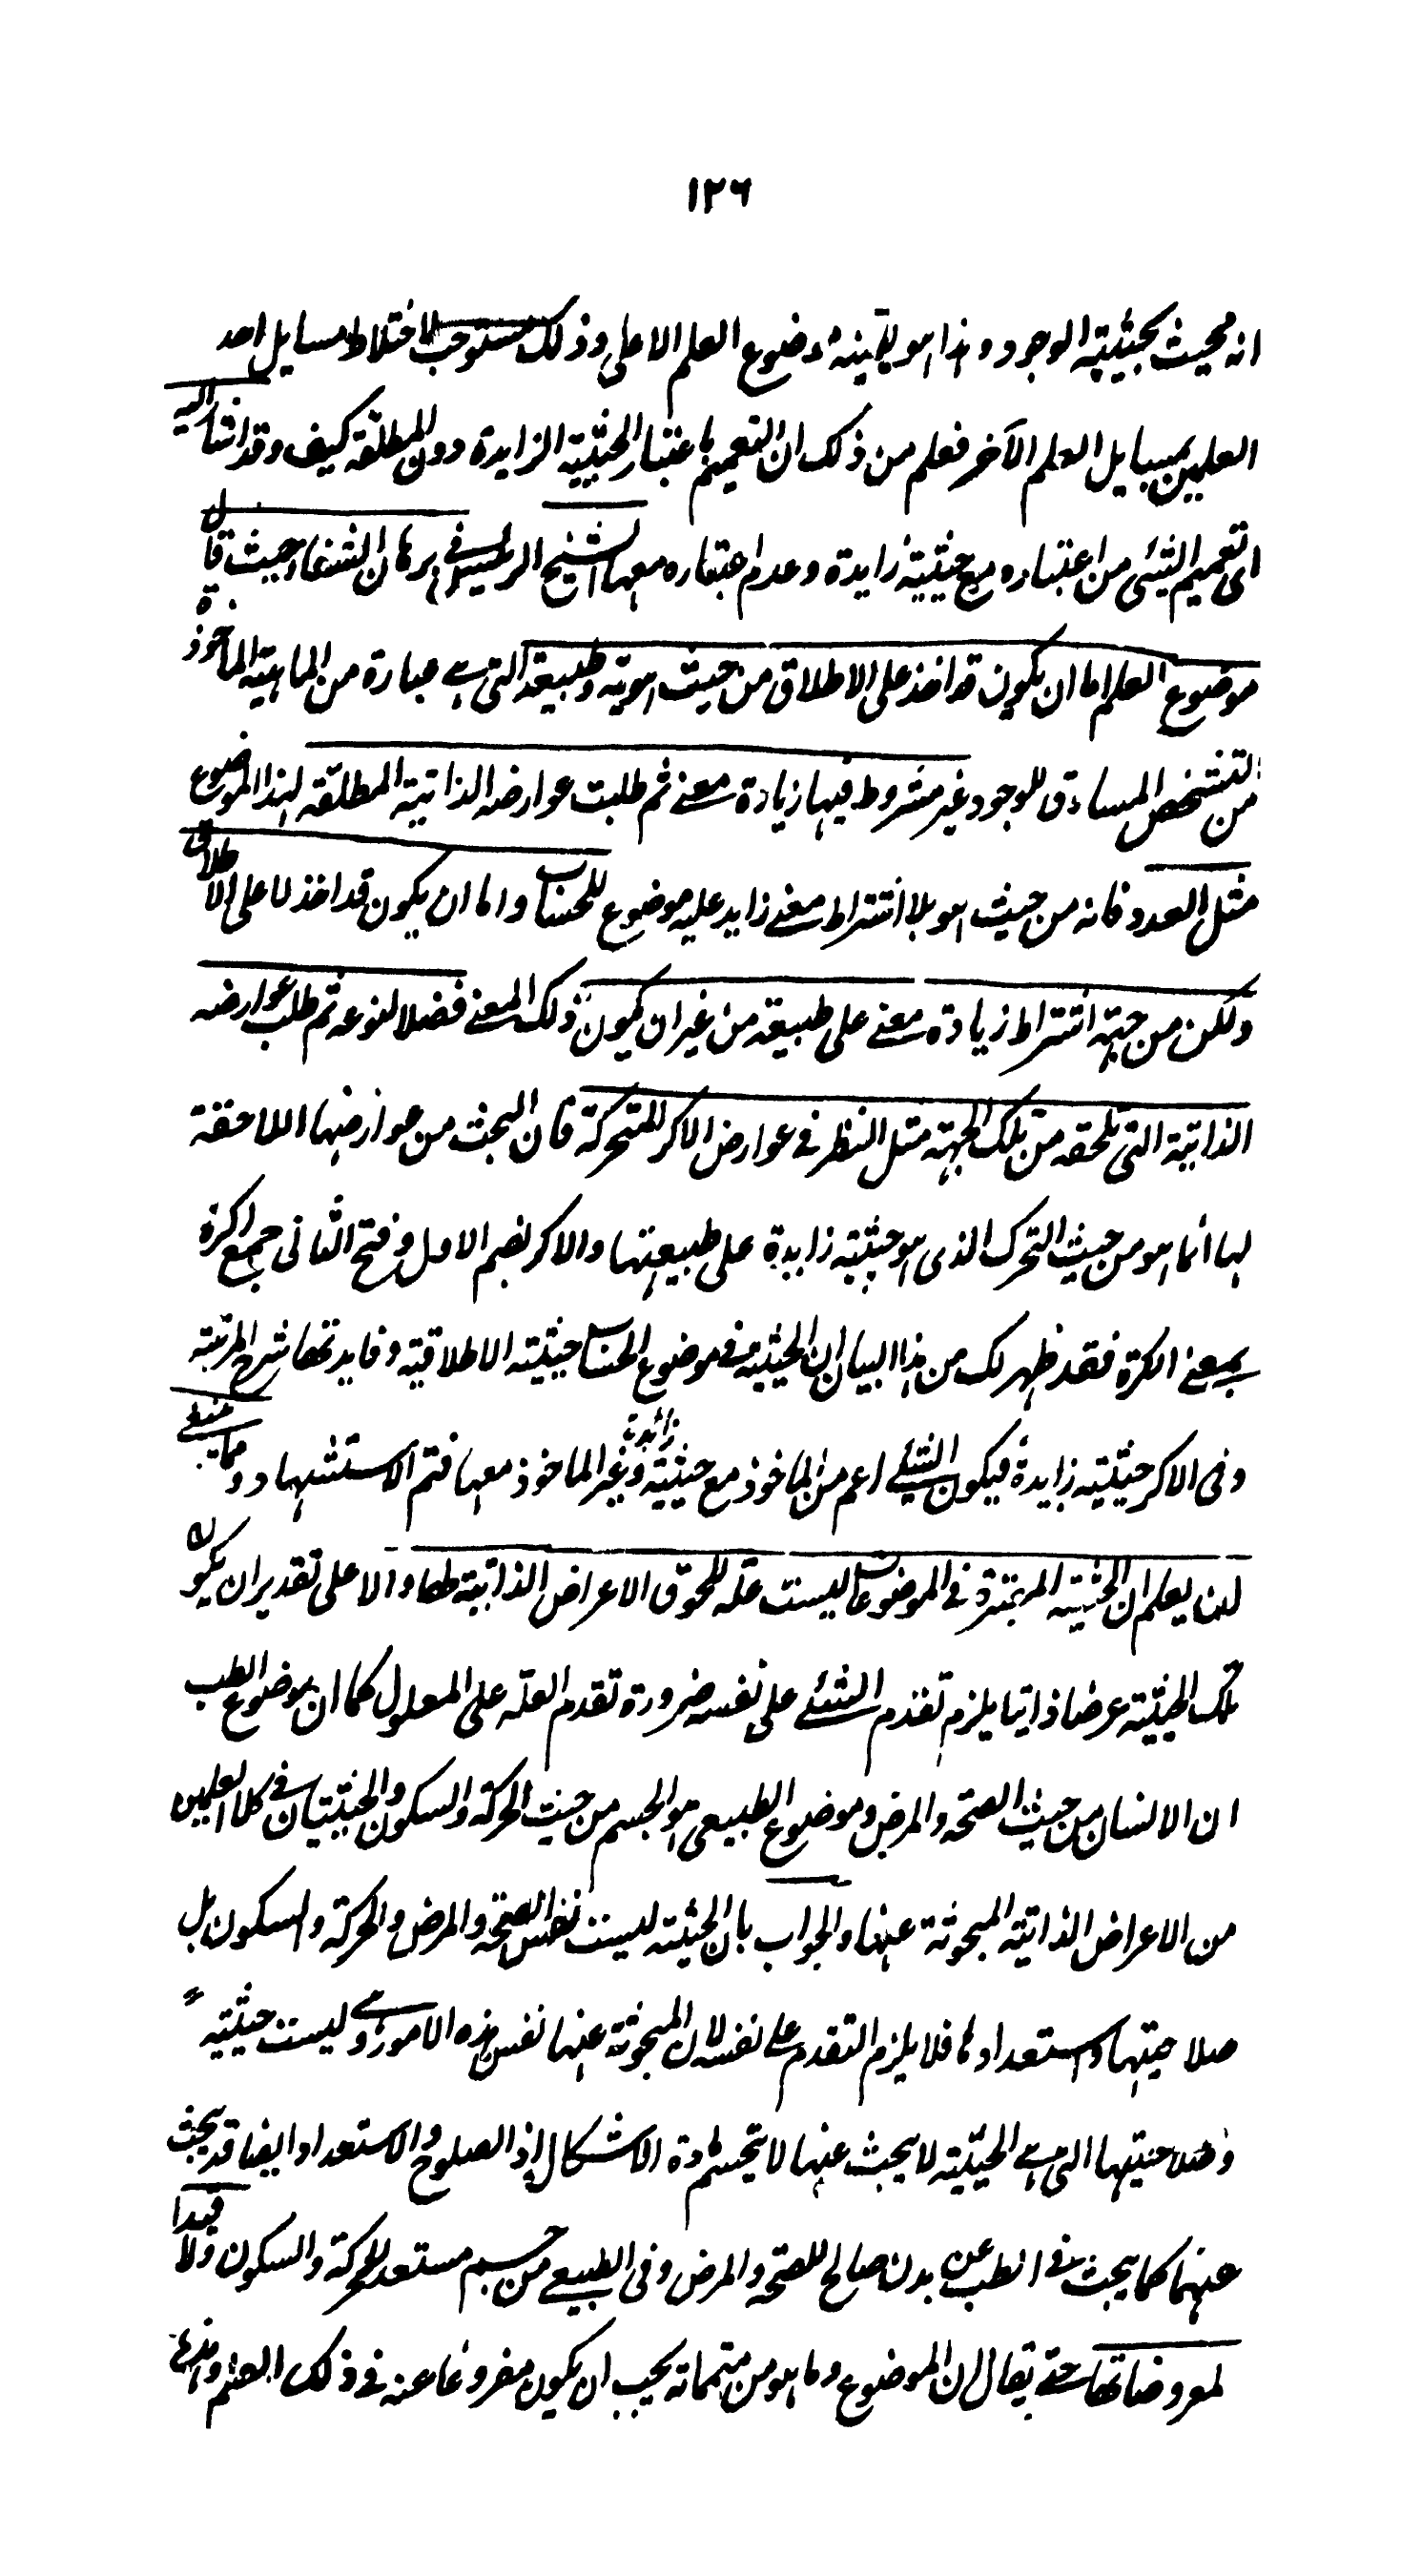 ١٢٦
انه محيث بحيثية الوجود وهذا هو بعينه موضوع العلم الاعلى وذلك مستوجب لاختلاط مسايل احد
العلمين بمسايل العلم الآخر فعلم من ذلك ان التعميم باعتبار الحيثية الزايدة دون المطلقة كيف وقد اشار اليه
اى تعميم الشئ من اعتباره مع حيثية زايدة وعدم اعتباره معها الشيخ الرئيس فى برهان الشفاء حيث قال
موضوع العلم اما ان يكون قد اخذ على الاطلاق من حيث هويته وطبيعته التى هى عبارة من الماهية الماخوذة
من التشخص المساوق للوجود غير مشروط فيها زيادة معنى ثم طلبت عوارضه الذاتية المطلقه لهذا الموضوع
مثل العدد فانه من حيث هو بلا اشتراط معنى زايد عليه موضوع للحساب واما ان يكون قد اخذ لا على الاطلاق
ولكن من جهة اشتراط زيادة معنى على طبيعته من غير ان يكون ذلك المعنى فضلا لنوعه ثم طلب عوارضه
الذاتية التى تلحقه من تلك الجهة مثل النظر فى عوارض الاكر المتحركة فان البحث من عوارضها اللاحقة
لها انما هو من حيث التحرك الذى هو حيثية زايدة على طبيعتها والاكر بضم الاول وفتح الثانى جمع اكرة
بمعنى الكرة فقد ظهر لك من هذا البيان ان الحيثية فى موضوع الحساب حيثيته الاطلاقية وفايدتها شرح المرتبة
وفى الاكر حيثية زايدة فيكون الشئ اعم من الماخوذ مع حيثية زائدة وغير الماخوذ معها فتم الاستشهاد ومما ينبغى
ان يعلم ان الحيثية المعتبرة فى الموضوعات ليست علة للحوق الاعراض الذاتية طها والا على تقدير ان يكون
تلك الحيثية عرضا ذاتيا يلزم تقدم الشئ على نفسه ضرورة تقدم العلة على المعلول كما ان موضوع الطب
ان الانسان من حيث الصحة والمرض وموضوع الطبيعى هو الجسم من حيث الحركة والسكون والحيثيتان فى كلا العلمين
من الاعراض الذاتية المبحوثة عنها والجواب بان الحيثية ليست نفس الصحة والمرض والحركة والسكون بل
صلاحيتها واستعدادها فلا يلزم التقدم على نفسه لان المبحوثة عنها نفس هذه الامور وهى ليست حيثية
وصلاحيتها التى هى الحيثية لا يبحث عنها لا يحسم مادة الاشكال اذ الصلوح والاستعداد ايضا قد يبحث
عنهما كما يبحث فى الطب عن بدن صالح للصحة والمرض وفى الطبيعى من جسم مستعد للحركة والسكون ولا قيدا
لمعروضاتها حتى يقال ان الموضوع وما هو من متمماته يجب ان يكون مفروغا عنه فى ذلك العلم